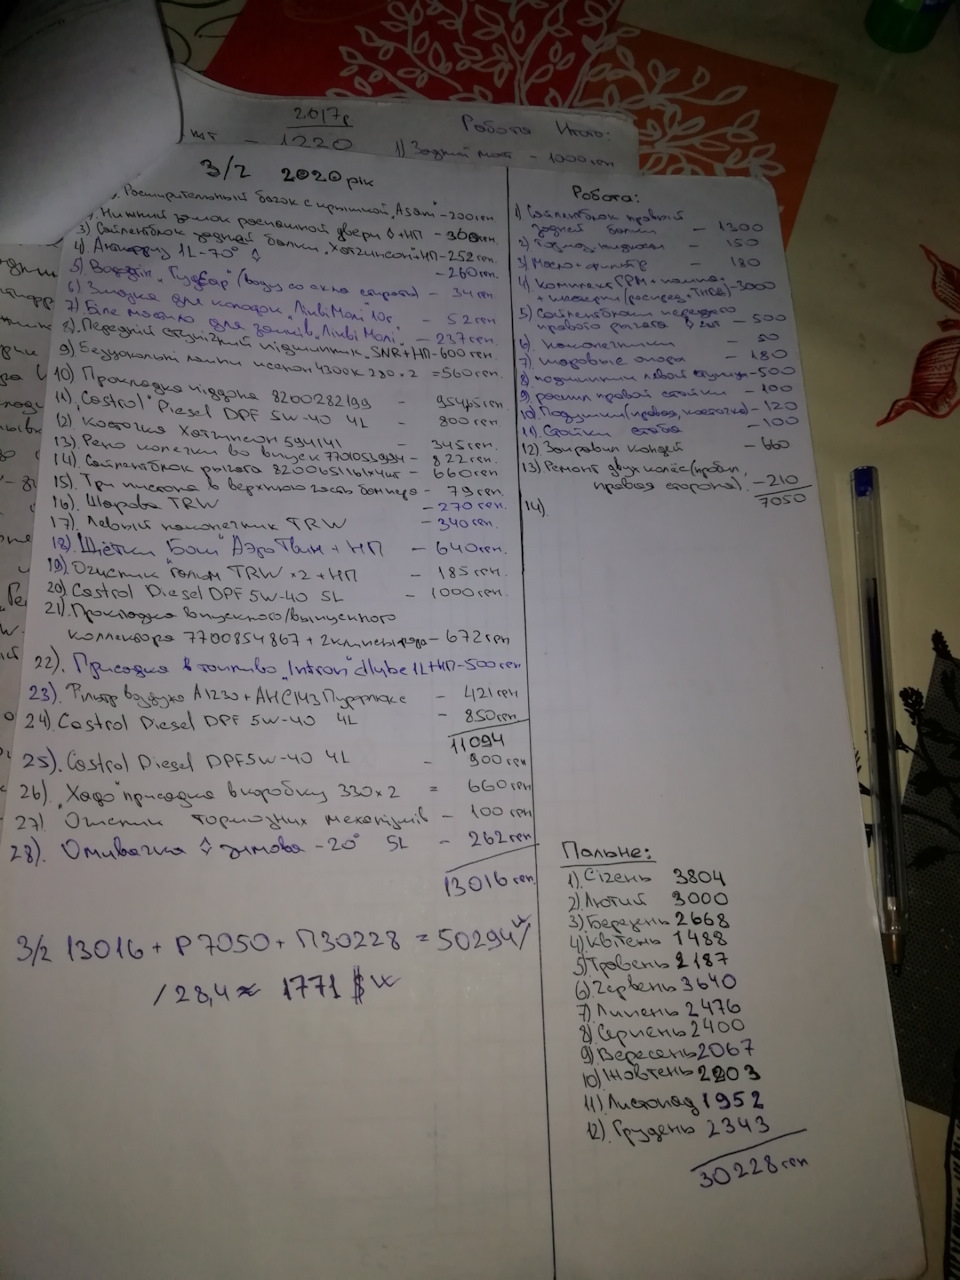 2017г
шт - 1220
Робота Итого:
1) Задний мот - 1000грн
З/Ч 2020 рік
Расширительный бачок с крышкой "Asam" - 200грн
Нижний замок распашной двери + НП - 360грн
3) Сайлентблок задней балки "Хатчинсон" + НП - 252грн
4) Антифриз 1L -70°
- 260грн
5) (воду со скла стирати) - 34грн
6) Змазка для колодок "Ликві Молі" 10г - 52грн
7) Біле мастило для замків "Ликві Молі" - 237грн
8) Передній ступічний підшипник SNR + НП - 600грн
9) лампи 4300К 280×2 = 560грн
10) Прокладка піддона 8200282199 -
11) "Castrol" Diesel DPF 5W-40 4L - 800грн
12) Косточка Хатчинсон 594141 - 345грн.
13) Рено колечки во впуск - 822грн
14) Сайлентблок рычага - 660грн
15) Три пистона в верхнюю часть бампера - 79грн
16) Шарова TRW - 270грн
17) Левый наконечник TRW - 340грн
18) Щётки "Бош" АэроТвин + НП - 640грн.
19) Очистик гальм TRW ×2 + НП - 185грн.
20) Castrol Diesel DPF 5W-40 5L - 1000грн
21) Прокладка впускного/выпускного
коллектора 7700854867 - 672грн
22). Присадка в топливо 1L+НП - 500грн
23) Фільтр воздуха А1230 + - 421грн
24) Castrol Diesel DPF 5W-40 4L - 850грн
11094
25). Castrol Diesel DPF 5W-40 4L - 900грн
26). "Хадо" присадка в коробку 330×2 = 660грн
27) Очистик тормозних механізмів - 100грн
28). Омивачка зимова -20° 5L - 262грн
13016грн.
З/Ч 13016 + Р 7050 + П 30228 = 50294
/ 28,4 ≈ 1771 $
Робота:
1) Сайлентблок правый
задней балки - 1300
2) Тормоз. жидкость - 150
3) Масло + фильтр - 180
4) Комплект ГРМ + помпа +
+ шестерни (распред + ТНВД) - 3000
5) Сайлентблоки переднего
правого рычага 2 шт - 500
6) Наконечники - 50
7) Шаровые опора - 180
8) подшипник левой ступицы - 500
9) правой стойки - 100
10) Подушки (правая, косточка) - 120
11) Стойки стаба - 100
12) Заправил кондей - 660
13) Ремонт двух колёс (пробил,
правая сторона) - 210
7050
14).
Пальне:
1). Січень 3804
2). Лютий 3000
3) Березень 2668
4) Квітень 1488
5) Травень 2187
6) Червень 3640
7) Липень 2476
8) Серпень 2400
9) Вересень 2067
10) Жовтень 2203
11) Листопад 1952
12). Грудень 2343
30228грн